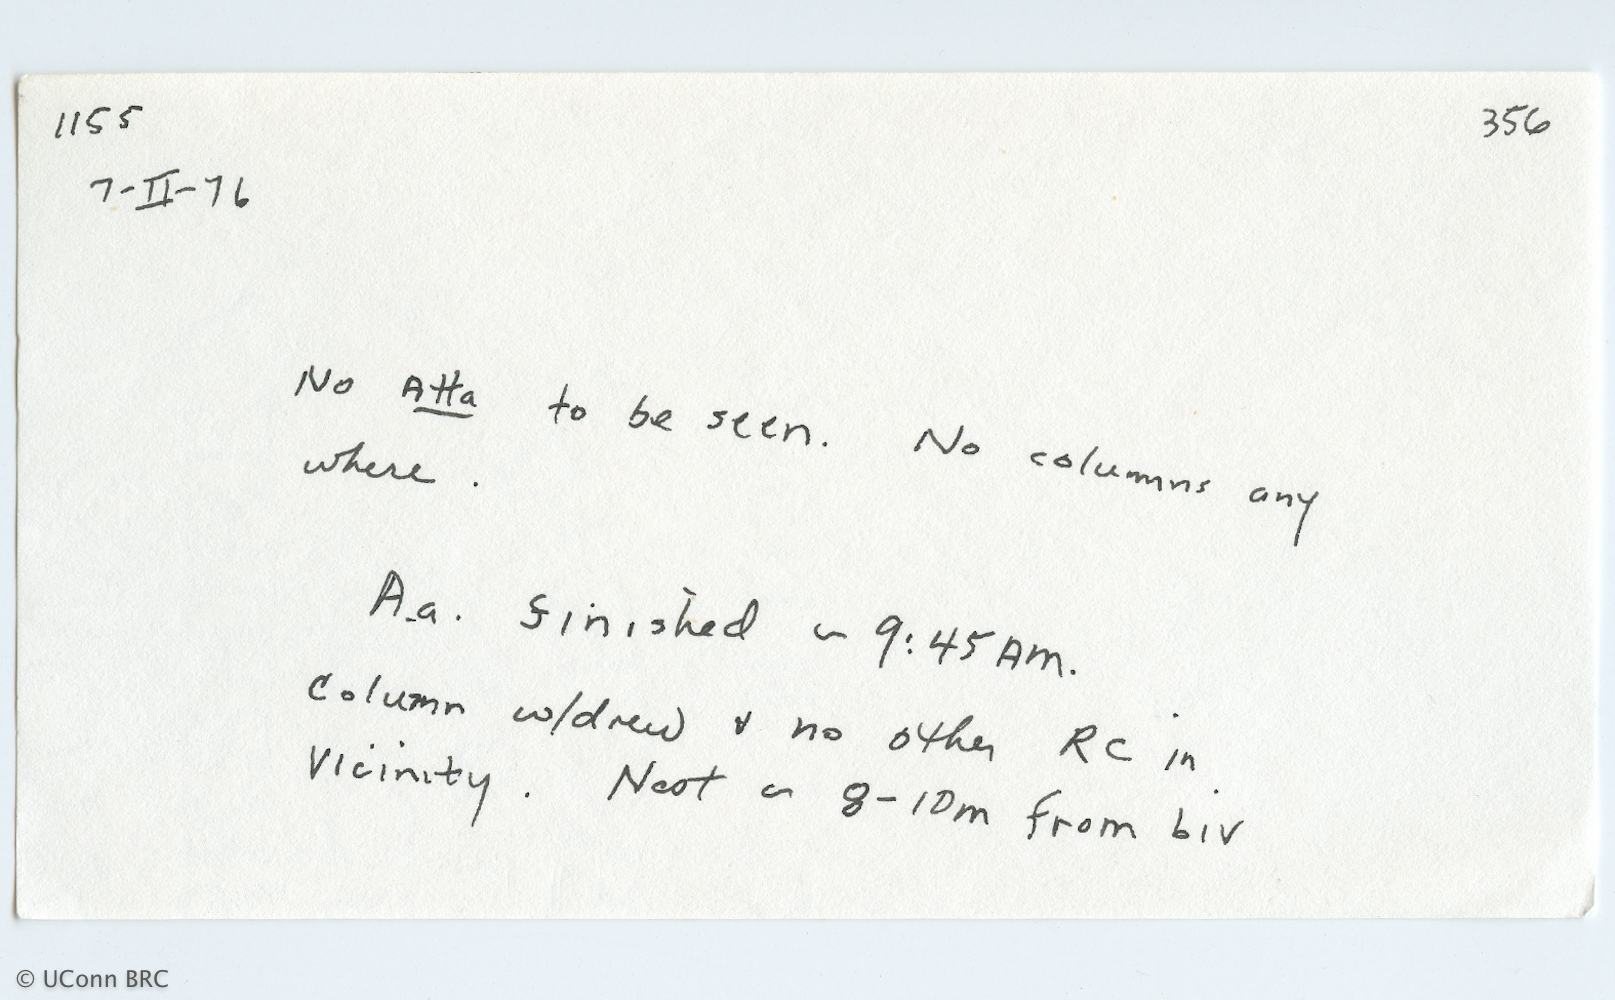 1155
356
7-II-76
No Atta to be seen. No columns any
where.
A.a. finished ~ 9:45 AM.
Column w/drew & no other RC in
Vicinity. ~ 8-10m from biv
© UConn BRC